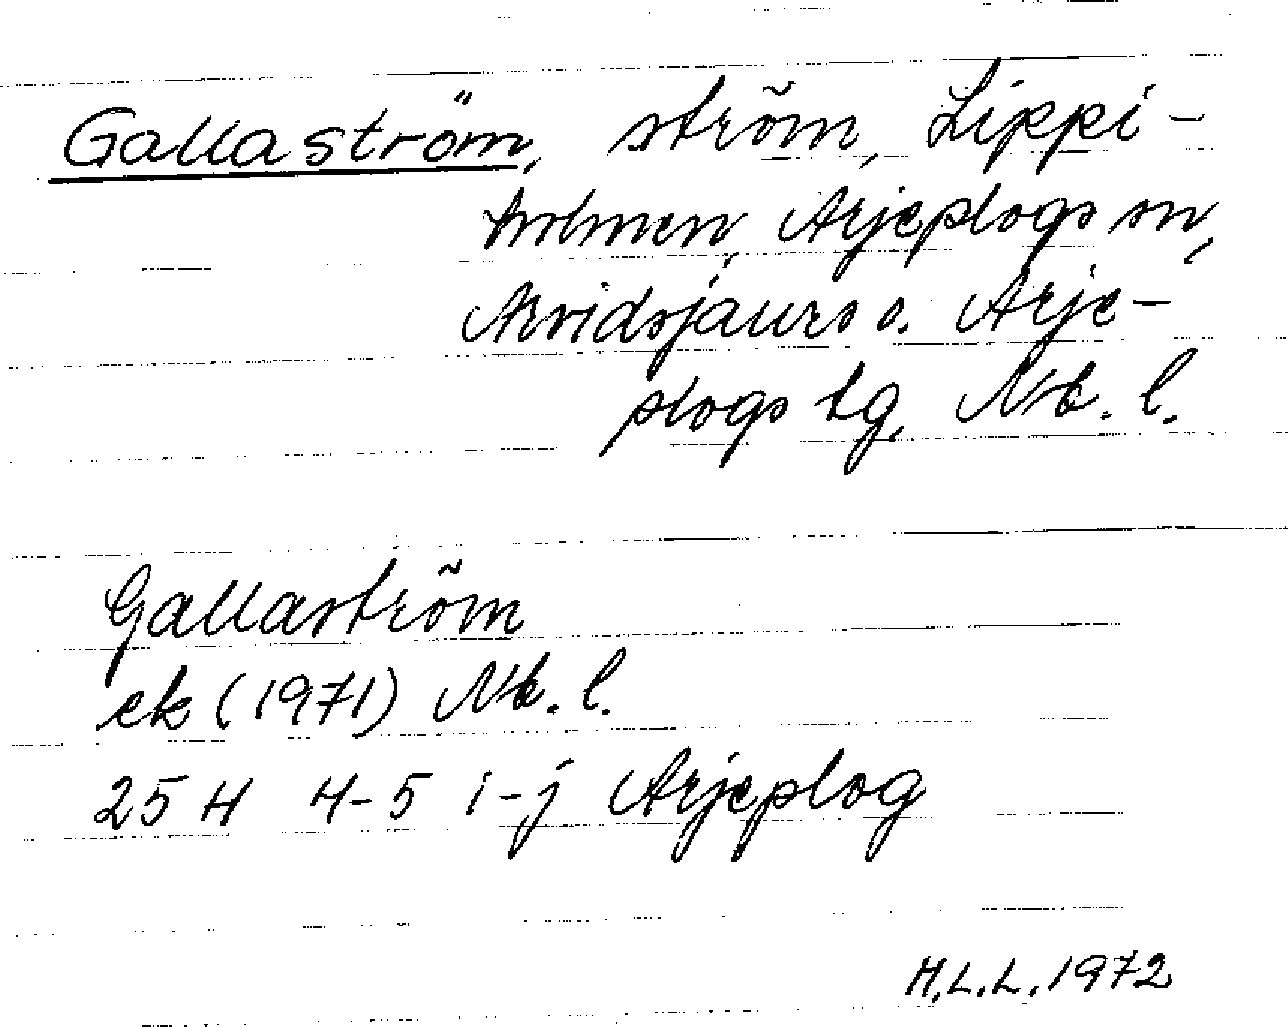 Gallaström, ström, Lippi-
holmen, Arjeplogs sn,
Arvidsjaurs o. Arje-
plogs tg, Nb. l.
Gallaström
ek (1971) Nb. l.
25 H 4-5 i-j Arjeplog
H.L.L. 1972